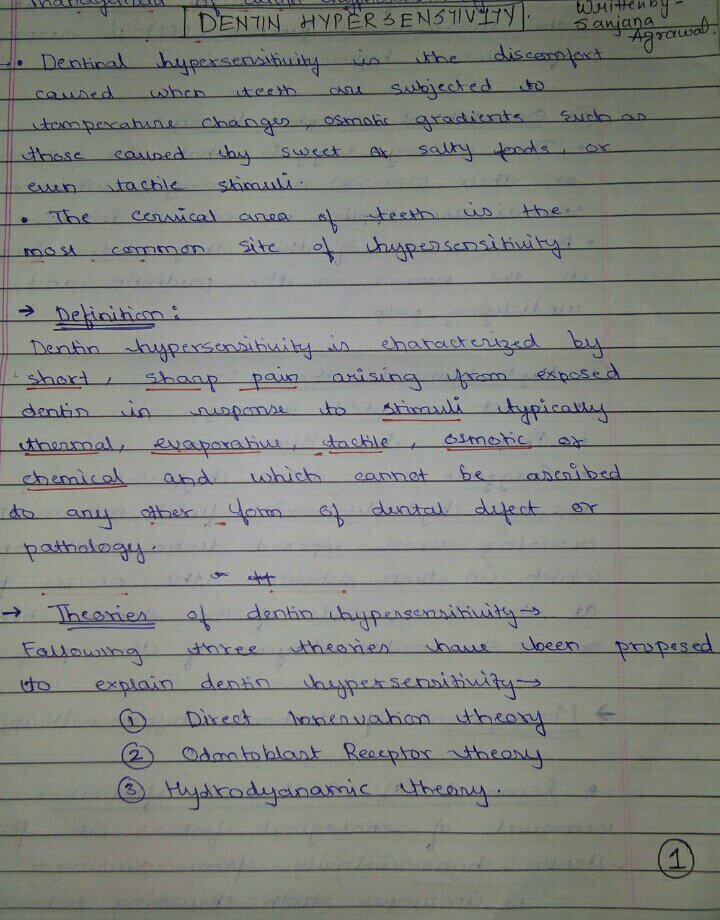 DENTIN HYPERSENSTIVITY.
Written by -
Sanjana
Agrawal.
• Dentinal hypersensitivity is the discomfort
caused when teeth are subjected to
temperature changes, osmotic gradients such as
those caused by sweet or salty foods, or
even tactile stimuli.
• The cervical area of teeth is the
most common site of hypersensitivity
→ Definition:
Dentin hypersensitivity is characterized by
short, sharp pain arising from exposed
dentin in response to stimuli typically
thermal, evaporative, tactile, osmotic or
chemical and which cannot be ascribed
to any other form of dental defect or
pathology.
→ Theories of dentin hypersensitivity→
Following three theories have been proposed
to explain dentin hypersensitivity→
① Direct Innervation theory
② Odontoblast Receptor theory
③ Hydrodyanamic theory.
1